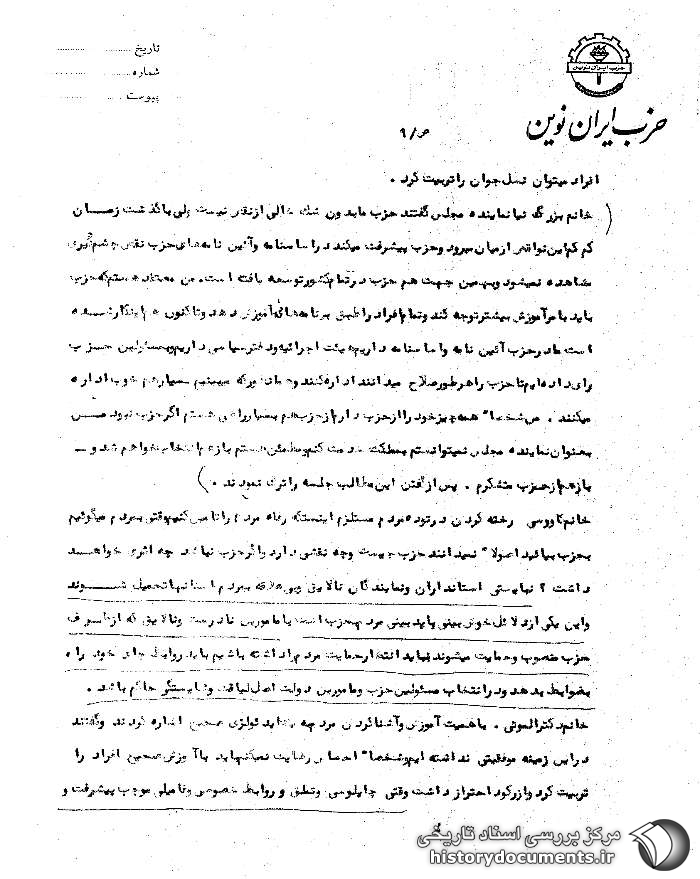 تاریخ
شماره
پیوست
حزب ایران نوین
حزب ایران نوین
ص/۹
افراد میتوان نسل جوان را تربیت کرد .
خانم بزرگ نیا نماینده مجلس گفتند حزب ما بدون شک خالی از نقص نیست ولی با گذشت زمان
کم کم این نواقص از میان میرود و حزب پیشرفت میکند در اساسنامه و آئین نامه های حزب نقص چشم گیری
مشاهده نمیشود و بهمین جهت هم حزب در تمام کشور توسعه یافته است. من معتقد هستم که حزب
باید بامر آموزش بیشتر توجه کند و تمام افراد را طبق برنامه های آموزش دهد و تاکنون هم اینکار شده
است ما در حزب آئین نامه و اساسنامه داریم هیئت اجرائیه و دفتر سیاسی داریم و بمسئولین حزب
رای داده ایم تا حزب را هر طور صلاح میدانند اداره کنند و همانطور که میبینیم بسیار هم خوب اداره
میکنند . من شخصا" همه چیز خود را از حزب دارم از حزب هم بسیار راضی هستم اگر حزب نبود من
بعنوان نماینده مجلس نمیتوانستم بمملکت خدمت کنم و مطمئن هستم باز هم انتخاب خواهم شد و ـ
باز هم از حزب متشکرم . پس از گفتن این مطالب جلسه را ترک نمودند .
خانم کاووسی رخنه کردن در توده مردم مستلزم اینستکه رفاه مردم را تامین کنیم وقتی بمردم میگوئیم
بحزب بیائید اصولا" نمیدانند حزب چیست و چه نقشی دارد و اگر حزب نباشد چه اثری خواهد
داشت ؟ نبایستی استانداران و نمایندگان نالایق و بی علاقه بمردم استانها تحمیل شوند
و این یکی از دلائل خوش بینی یا بد بینی مردم بحزب است با مامورین نادرست و نالایق که از طرف
حزب منصوب و حمایت میشوند نباید انتظار حمایت مردم را داشته باشیم باید روابط جای خود را به
ضوابط بدهد و در انتخاب مسئولین حزب و مامورین دولت اصل لیاقت و شایستگی حاکم باشد .
خانم دکتر الموتی . باهمیت آموزش و آشنا کردن مردم به ایدئولوژی صحیح اشاره کردند و گفتند
در این زمینه موفقیتی نداشته ایم و شخصا" احساس رضایت نمیکنم باید با آموزش صحیح افراد را
تربیت کرد و از رکود احتراز داشت وقتی چاپلوسی و تملق و روابط خصوصی و فامیلی موجب پیشرفت و
مرکز بررسی اسناد تاریخی
historydocuments.ir